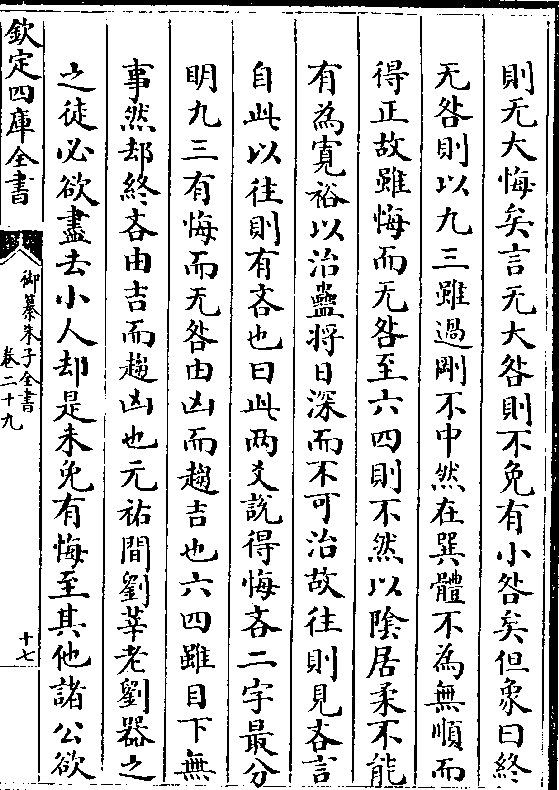 則无大悔矣言无大咎則不免有小咎矣但象曰終
无咎則以九三雖過剛不中然在巽體不為無順而
得正故雖悔而无咎至六四則不然以陰居柔不能
有為寛裕以治蠱將日深而不可治故往則見吝言
自此以往則有吝也曰此两爻說得悔吝二字最分
明九三有悔而无咎由凶而趨吉也六四雖目下無
事然却終吝由吉而趨凶也元祐間劉莘老劉器之
之徒必欲盡去小人却是未免有悔至其他諸公欲
欽定四庫全書
御纂朱子全書
卷二十九
十七